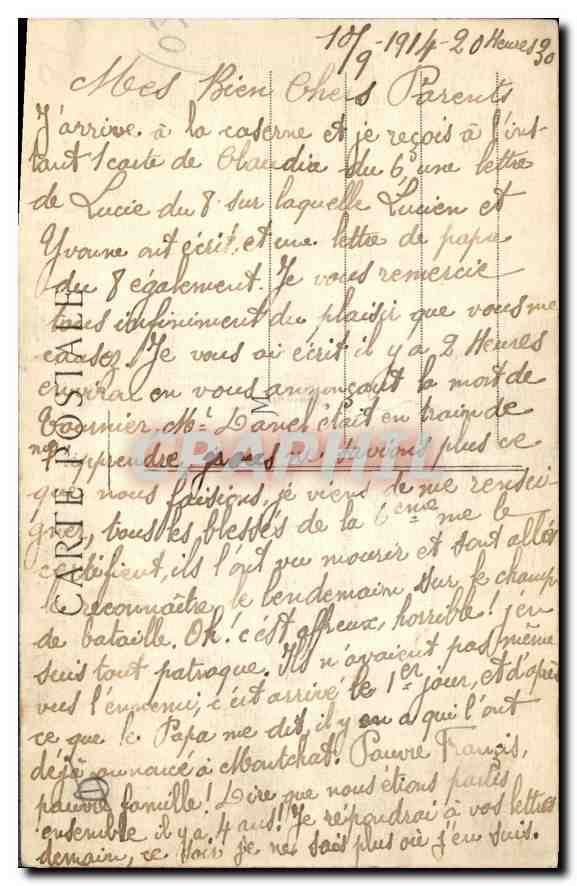 10/9-1914-20 Heures 30
Mes Bien Chers Parents
J'arrive à la caserne et je reçois à l'ins-
tant 1 carte de Claudia du 6, une lettre
de Lucie du 8 sur laquelle Lucien et
Yvonne ont écrit, et une lettre de papa
du 8 également. Je vous remercie
tous infiniment du plaisir que vous me
causez. Je vous ai écrit il y a 2 Heures
environ en vous annonçant la mort de
Mr Danel était en train de
nous l'apprendre, nous ne savions plus ce
que nous faisions, je viens de me rensei-
gner, tous les blessés de la 6eme me le
certifient, ils l'ont vu mourir et sont allés
le reconnaître le lendemain sur le champ
de bataille. Oh! c'est affreux, horrible! j'en
suis tout patraque. Ils n'avaient pas même
vus l'ennemi, c'est arrivé le 1er jour, et d'après
ce que le Papa me dit, il y en a qui l'ont
déjà annoncé à Montchat. Pauvre Francis,
pauvre famille! Dire que nous étions partis
ensemble il y a 4 ans! Je répondrai à vos lettres
demain, ce soir je ne sais plus où j'en suis.
CARTE POSTALE
M
CPAPHIL